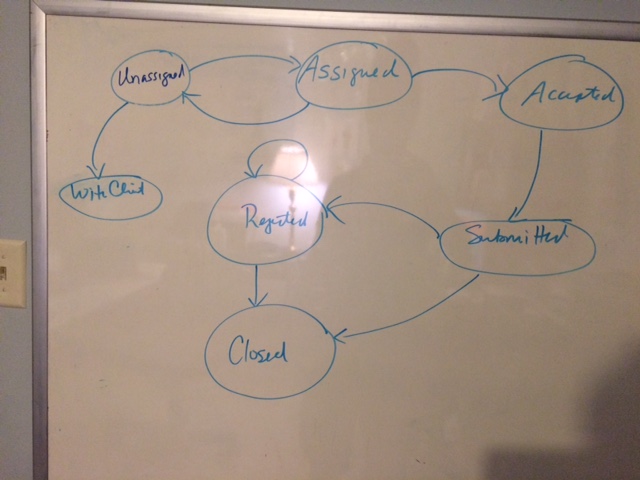 Unassigned
Assigned
Accepted
With Client
Rejected
Submitted
Closed